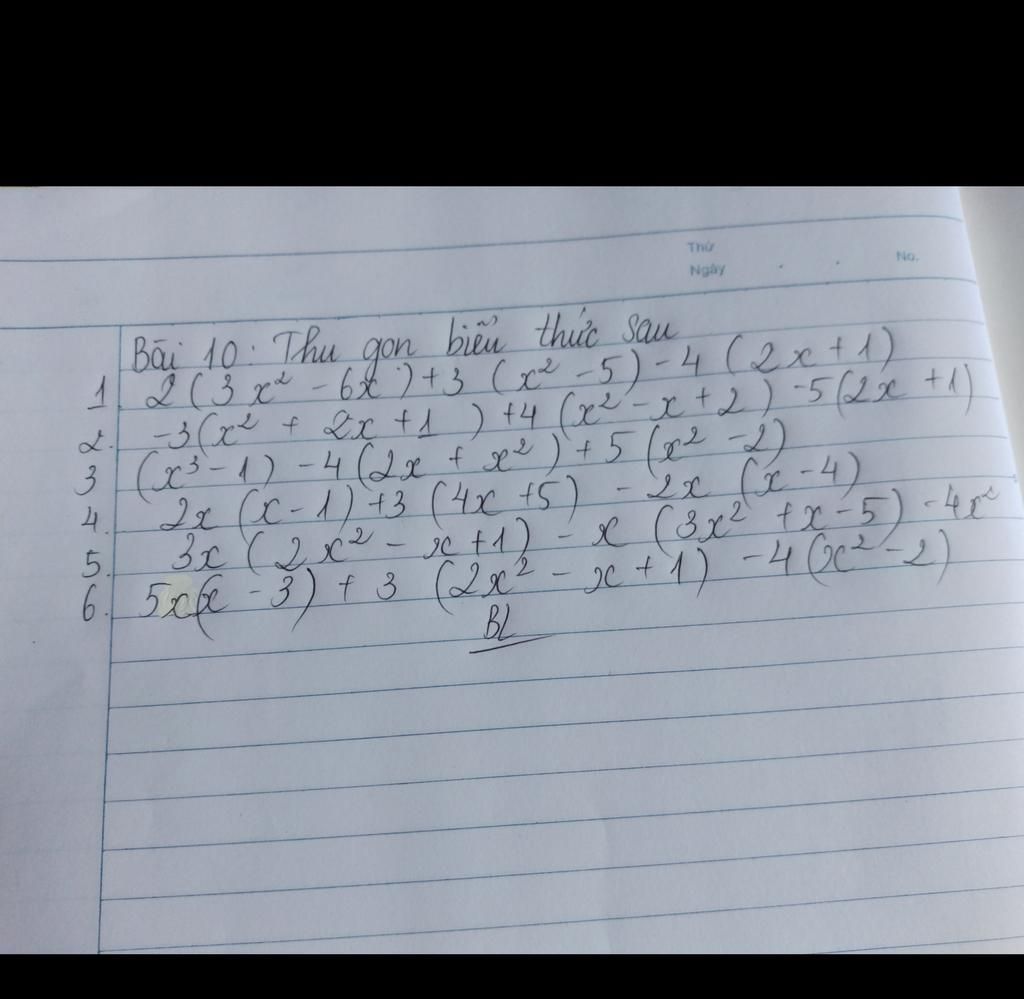 Thứ
Ngày . . No.
Bài 10: Thu gọn biểu thức sau
1 2(3x² - 6x) + 3(x² - 5) - 4(2x + 1)
2. -3(x² + 2x + 1) + 4(x² - x + 2) - 5(2x + 1)
3 (x³ - 1) - 4(2x + x²) + 5(x² - 2)
4. 2x(x - 1) + 3(4x + 5) - 2x(x - 4)
5. 3x(2x² - x + 1) - x(3x² + x - 5) - 4x²
6. 5x(x - 3) + 3(2x² - x + 1) - 4(x² - 2)
BL